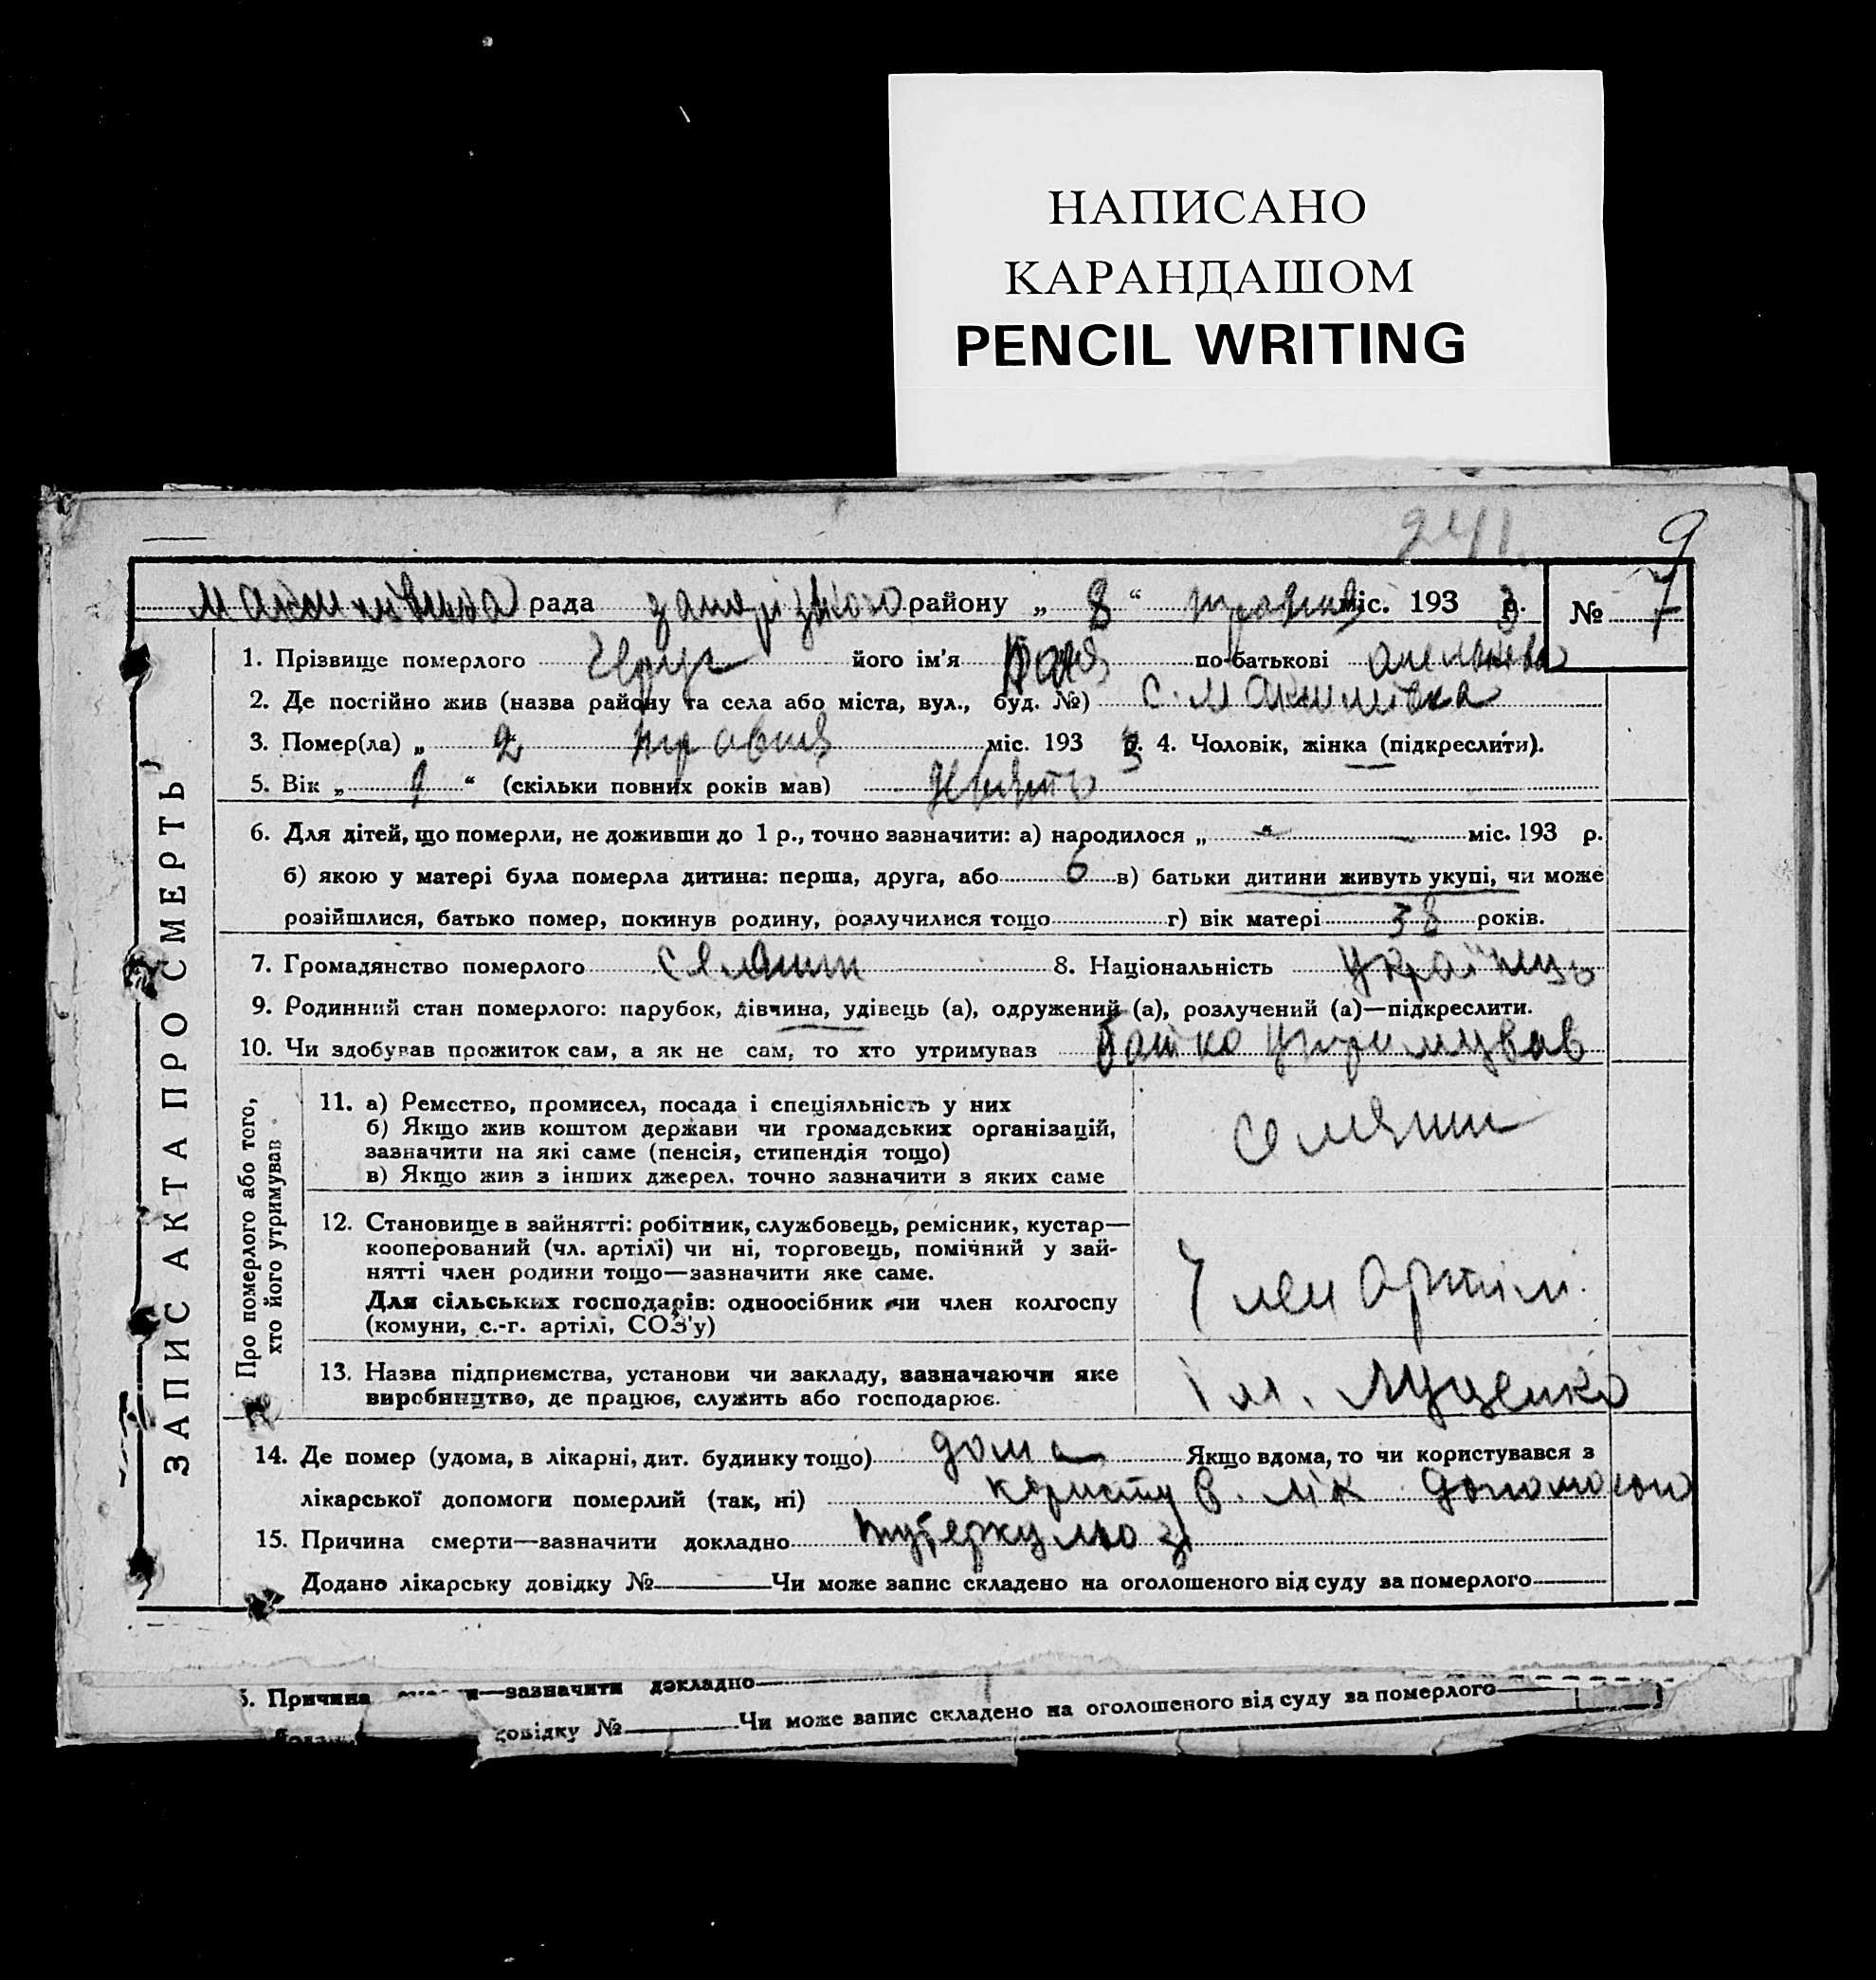 НАПИСАНО
КАРАНДАШОМ
PENCIL WRITING
241.
9
рада району „ 8 “ травня міс. 193 3 р. № 7
1. Прізвище померлого його ім'я по-батькові
2. Де постійно жив (назва району та села або міста, вул., буд. №) с. Максимівка
3. Помер(ла) „ 2 травня міс. 193 3 р. 4. Чоловік, жінка (підкреслити).
5. Вік „ 9 “ (скільки повних років мав) девять
6. Для дітей, що померли, не доживши до 1 р., точно зазначити: а) народилося „ “ міс. 193 р.
б) якою у матері була померла дитина: перша, друга, або 6 в) батьки дитини живуть укупі, чи може
розійшлися, батько помер, покинув родину, розлучилися тощо г) вік матері 38 років.
7. Громадянство померлого селянин 8. Національність українець
9. Родинний стан померлого: парубок, дівчина, удівець (а), одружений (а), розлучений (а)—підкреслити.
10. Чи здобував прожиток сам, а як не сам, то хто утримував батко утримував
ЗАПИС АКТА ПРО СМЕРТЬ
Про померлого або того,
хто його утримував
11. а) Ремество, промисел, посада і спеціяльність у них
б) Якщо жив коштом держави чи громадських організацій,
зазначити на які саме (пенсія, стипендія тощо)
в) Якщо жив з інших джерел, точно зазначити з яких саме
селянин
12. Становище в зайнятті: робітник, службовець, ремісник, кустар—
кооперований (чл. артілі) чи ні, торговець, помічний у зай-
нятті член родини тощо—зазначити яке саме.
Для сільських господарів: одноосібник чи член колгоспу
(комуни, с.-г. артілі, СОЗ'у)
Член артіли.
13. Назва підприємства, установи чи закладу, зазначаючи яке
виробництво, де працює, служить або господарює.
ім. Луценко
14. Де помер (удома, в лікарні, дит. будинку тощо) дома Якщо вдома, то чи користувався з
лікарської допомоги померлий (так, ні) користув. лік допомогою
15. Причина смерти—зазначити докладно туберкульоз
Додано лікарську довідку № Чи може запис складено на оголошеного від суду за померлого
5. Причина —зазначити докладно
довідку № Чи може запис складено на оголошеного від суду за померлого